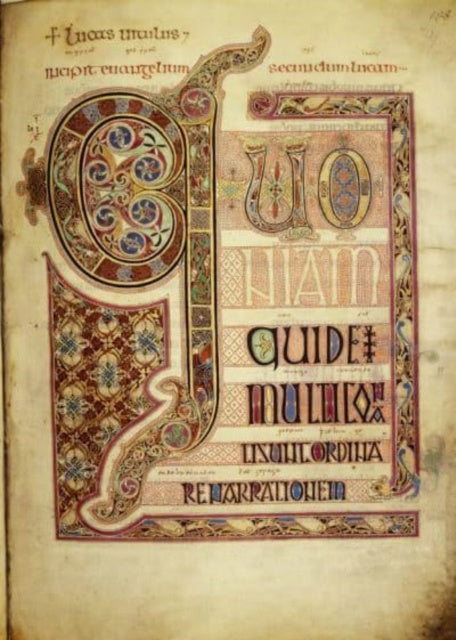 + lucas uitulus
incipit euangelium secundum lucam
QUO
NIAM
QUIDEM
MULTI CO
NA
TI SUNT ORDINA
RE NARRATIONEM